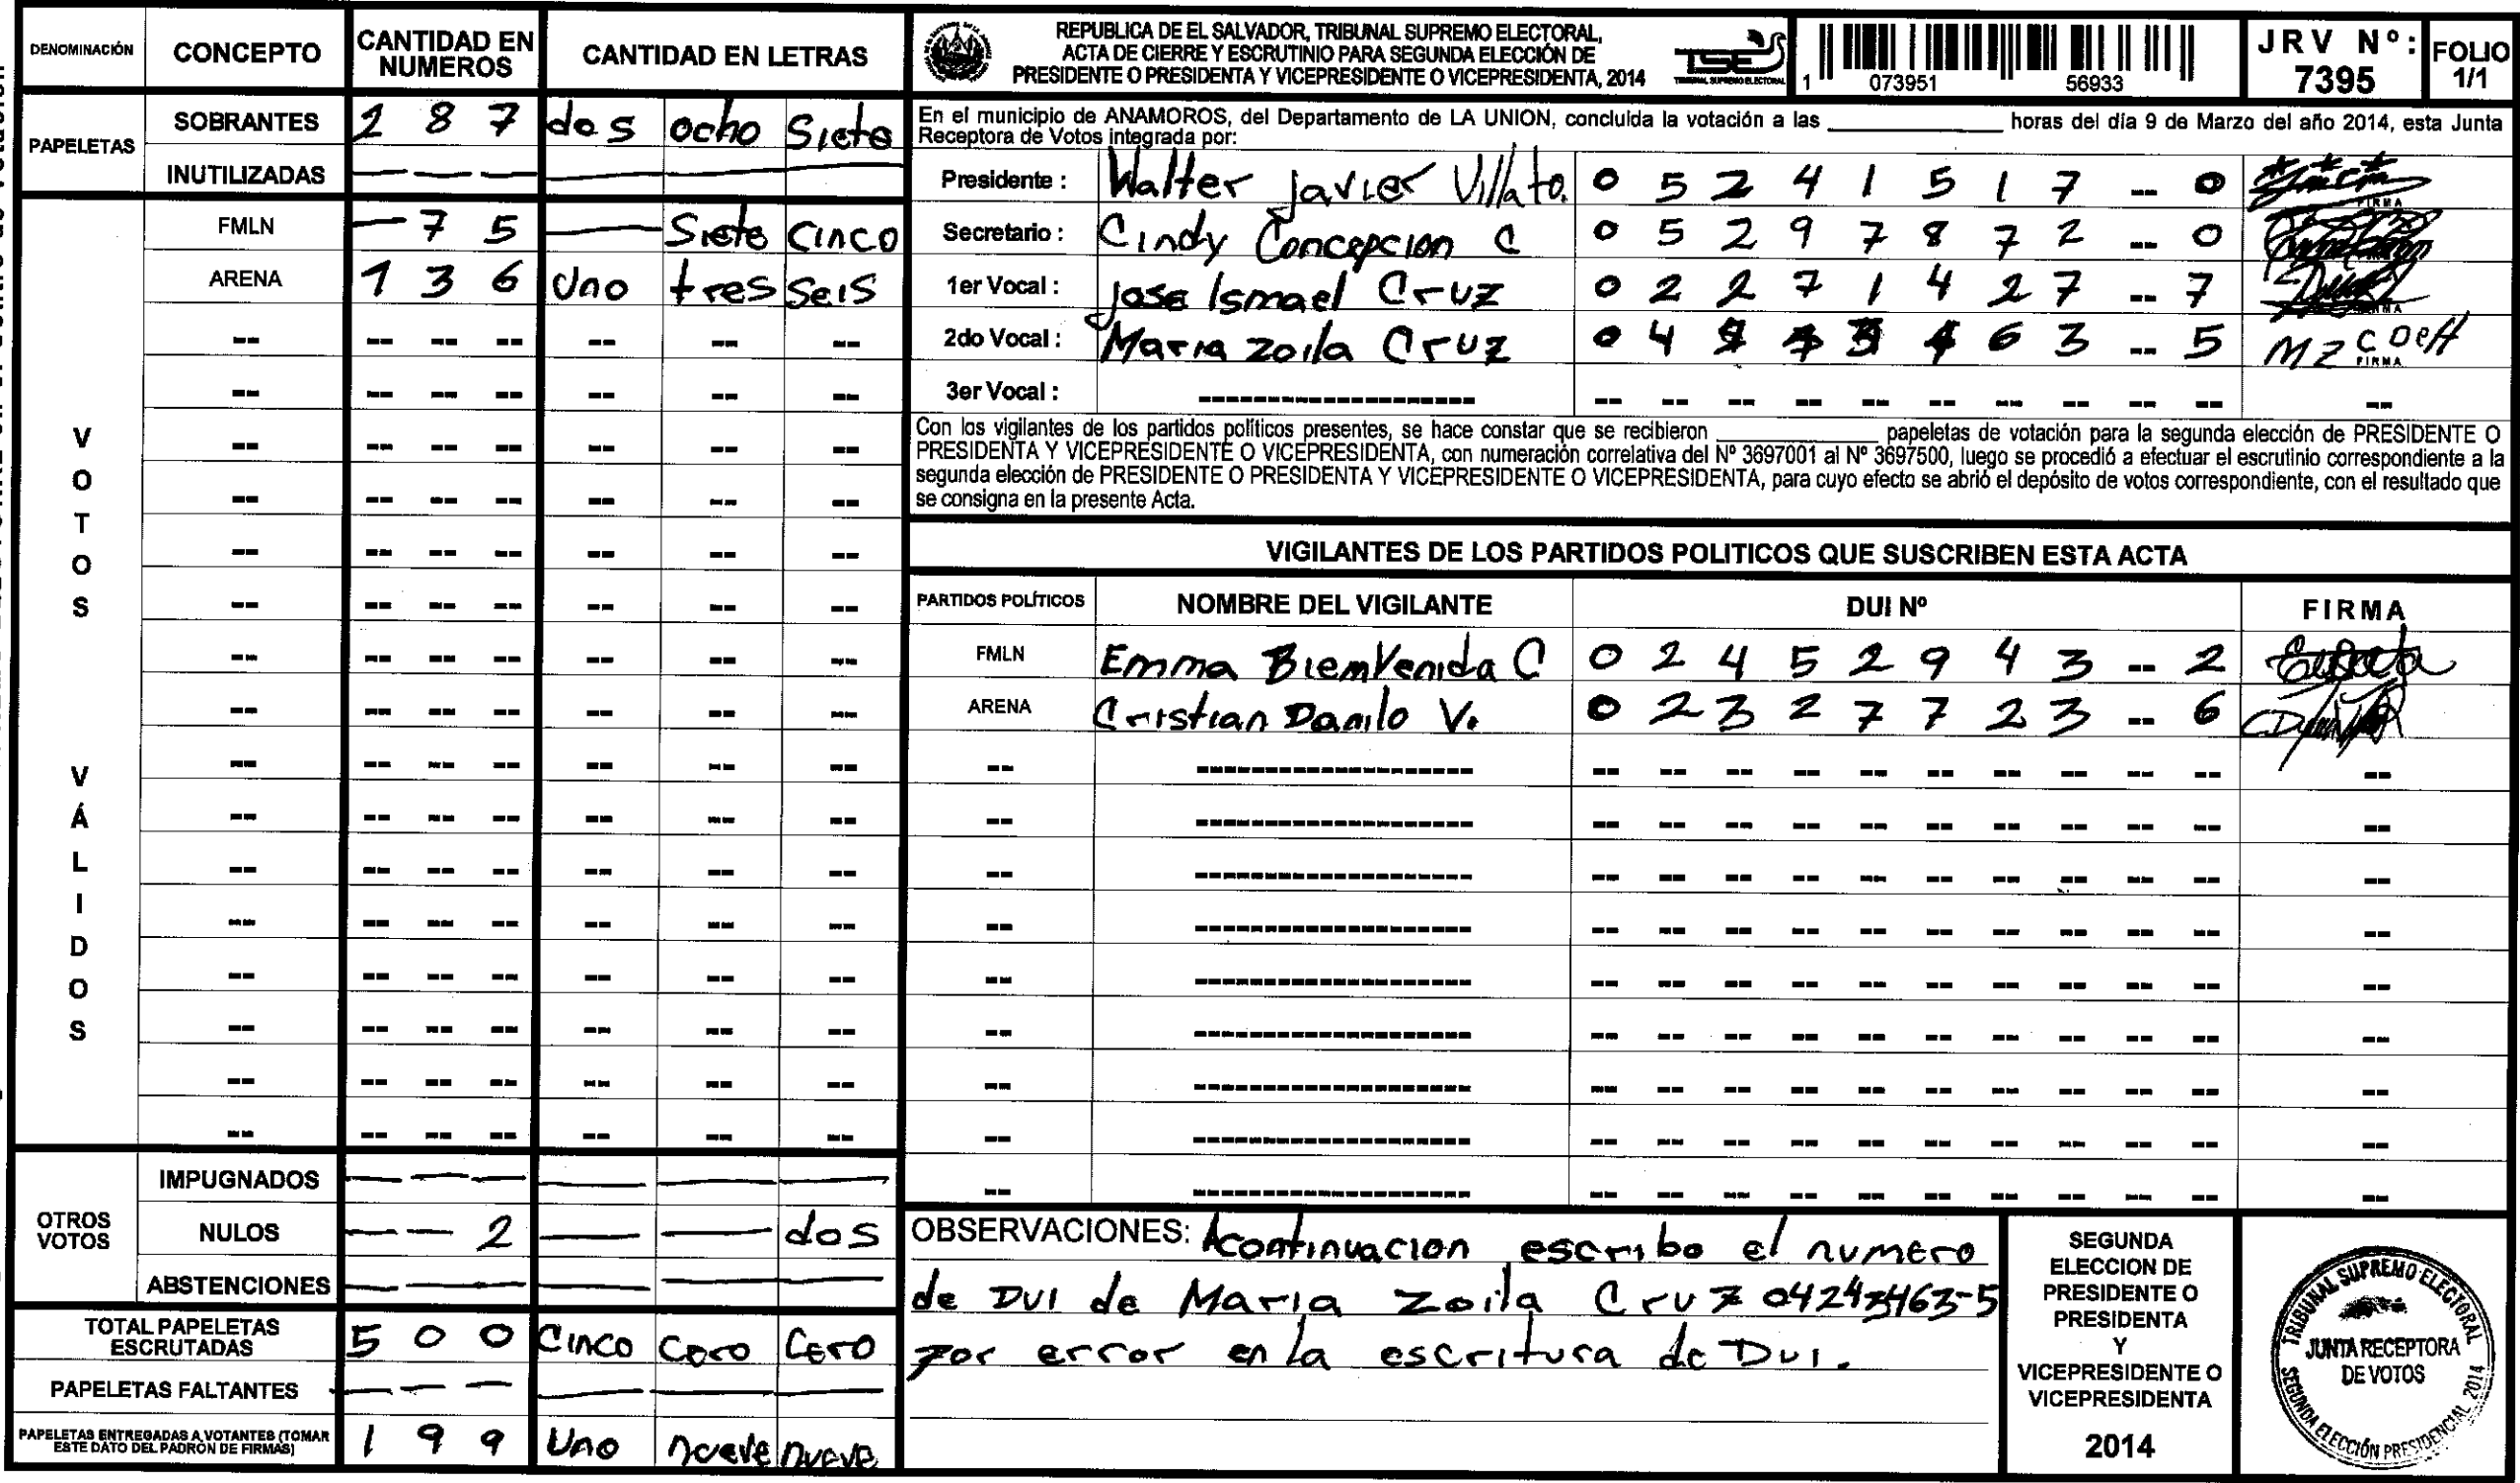 DENOMINACIÓN CONCEPTO CANTIDAD EN NUMEROS CANTIDAD EN LETRAS
PAPELETAS
SOBRANTES 2 8 7 dos ocho Siete
INUTILIZADAS — — — — — —
VOTOS VÁLIDOS
FMLN — 7 5 — Siete CINCO
ARENA 1 3 6 Uno tres seis
OTROS VOTOS
IMPUGNADOS — — — — — —
NULOS — — 2 — — dos
ABSTENCIONES — — — — — —
TOTAL PAPELETAS ESCRUTADAS 5 0 0 Cinco Cero Cero
PAPELETAS FALTANTES — — — — — —
PAPELETAS ENTREGADAS A VOTANTES (TOMAR ESTE DATO DEL PADRÓN DE FIRMAS) 1 9 9 Uno nueve nueve
REPUBLICA DE EL SALVADOR, TRIBUNAL SUPREMO ELECTORAL,
ACTA DE CIERRE Y ESCRUTINIO PARA SEGUNDA ELECCIÓN DE
PRESIDENTE O PRESIDENTA Y VICEPRESIDENTE O VICEPRESIDENTA, 2014
TSE
TRIBUNAL SUPREMO ELECTORAL
1 073951 56933
JRV Nº: 7395
FOLIO 1/1
En el municipio de ANAMOROS, del Departamento de LA UNION, concluida la votación a las ____________ horas del día 9 de Marzo del año 2014, esta Junta
Receptora de Votos integrada por:
Presidente : Walter Javier Villato. 0 5 2 4 1 5 1 7 -- 0
Secretario : Cindy Concepcion C 0 5 2 9 7 8 7 2 -- 0
1er Vocal : Jose Ismael Cruz 0 2 2 7 1 4 2 7 -- 7
2do Vocal : Maria Zoila Cruz 0 4 6 3 -- 5 MZ
FIRMA
3er Vocal :
Con los vigilantes de los partidos políticos presentes, se hace constar que se recibieron ____________ papeletas de votación para la segunda elección de PRESIDENTE O
PRESIDENTA Y VICEPRESIDENTE O VICEPRESIDENTA, con numeración correlativa del Nº 3697001 al Nº 3697500, luego se procedió a efectuar el escrutinio correspondiente a la
segunda elección de PRESIDENTE O PRESIDENTA Y VICEPRESIDENTE O VICEPRESIDENTA, para cuyo efecto se abrió el depósito de votos correspondiente, con el resultado que
se consigna en la presente Acta.
VIGILANTES DE LOS PARTIDOS POLITICOS QUE SUSCRIBEN ESTA ACTA
PARTIDOS POLÍTICOS NOMBRE DEL VIGILANTE DUI Nº FIRMA
FMLN Emma Biemvenida C 0 2 4 5 2 9 4 3 -- 2
ARENA Cristian Danilo V. 0 2 3 2 7 7 2 3 -- 6
OBSERVACIONES: Acontinuacion escribo el numero
de DUI de Maria Zoila Cruz 04243463-5
por error en la escritura de Dui.
SEGUNDA
ELECCION DE
PRESIDENTE O
PRESIDENTA
Y
VICEPRESIDENTE O
VICEPRESIDENTA
2014
TRIBUNAL SUPREMO ELECTORAL
JUNTA RECEPTORA
DE VOTOS
SEGUNDA ELECCIÓN PRESIDENCIAL 2014